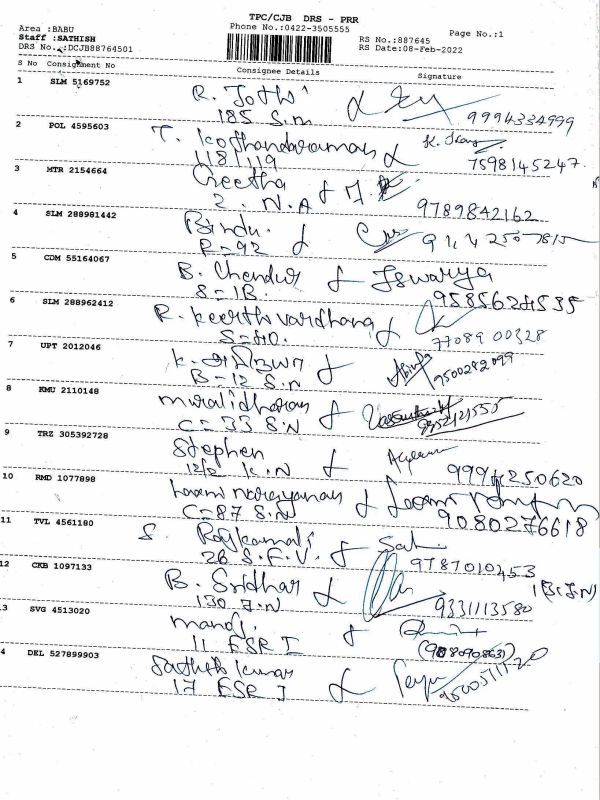 TPC/CJB DRS - PRR
Area :BABU
Phone No.:0422-3505555
Page No.:1
Staff :SATHISH
RS No.:887645
DRS No.:DCJB88764501
RS Date:08-Feb-2022
S No Consignment No Consignee Details Signature
1 SLM 5169752 R. Jothi
185 S.m 9994334999
2 POL 4595603 T. Kothandaraman
118/119 7598145247
3 MTR 2154664 Geetha
2. N.A 9789842162
4 SLM 288981442 Bindu.
R=92
5 CDM 55164067 B. Chendur Iswarya
S=1B.
6 SLM 288962412 R. Keerthivardhana
S=40. 77089 00328
7 UPT 2012046 K.
B=12 S.N 9500282099
8 KMU 2110148 muralidharan
C=33 S.N
9 TRZ 305392728 Stephen
12/2 K.N 9994250620
10 RMD 1077898 Laxmi narayanan
C=87 S.N 9080276618
11 TVL 4561180 S. Rajkamal
26 S.F.V. 9787010453
12 CKB 1097133 B. Sridhar
130 J.N 9331113580
13 SVG 4513020
11 ESR I
14 DEL 527899903 Sathish kumar
17 ESR I